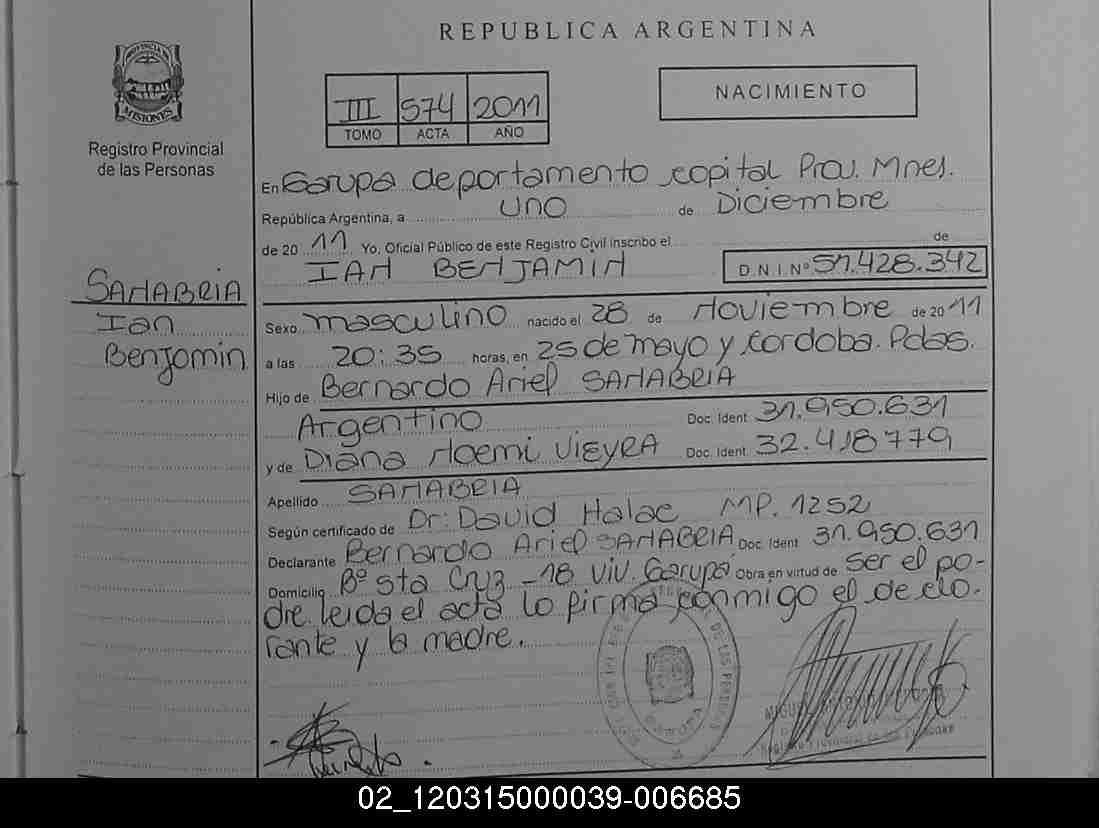 REPUBLICA ARGENTINA
PROVINCIA DE
MISIONES
Registro Provincial
de las Personas
III 574 2011
TOMO ACTA AÑO
NACIMIENTO
En Garupa departamento capital Prov. Mnes.
República Argentina, a uno de Diciembre
de 20 11 Yo, Oficial Público de este Registro Civil inscribo el de
IAN BENJAMIN D.N.I.Nº 51.428.342
SANABRIA
Ian
Benjamin
Sexo masculino nacido el 28 de Noviembre de 20 11
a las 20:35 horas, en 25 de mayo y cordoba. Pdas.
Hijo de Bernardo Ariel SANABRIA
Argentino Doc. Ident. 31.950.631
y de Diana Noemi VIEYRA Doc. Ident. 32.418779
Apellido SANABRIA
Según certificado de Dr: David Halac MP. 1252
Declarante Bernardo Ariel SANABRIA Doc. Ident. 31.950.631
Domicilio Bº sta Cruz - 18 Viv. Garupá Obra en virtud de ser el pa-
dre leida el acta lo firma conmigo el de cla-
rante y la madre.
02_120315000039-006685